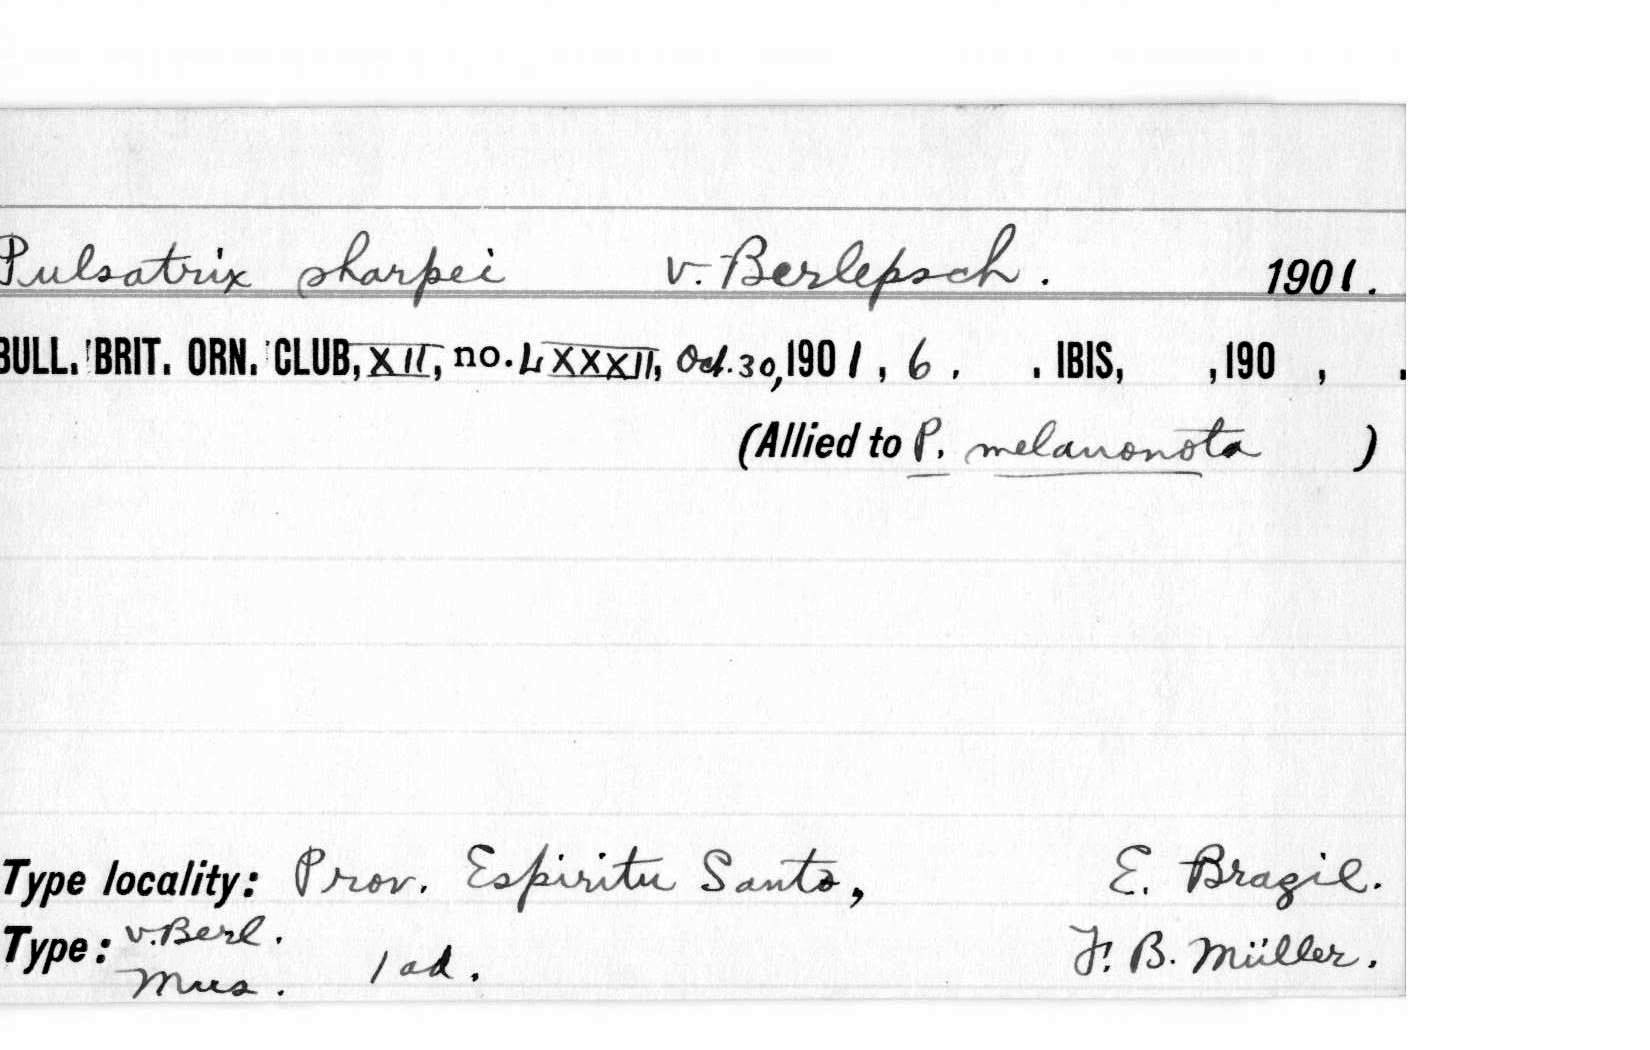 Pulsatrix sharpei v. Berlepsch. 1901.
BULL. BRIT. ORN. CLUB, XII, no. LXXXII, Oct. 30, 1901, 6. . IBIS, ,190 , .
(Allied to P. melanonota )
Type locality: Prov. Espiritu Santo, E. Brazil.
Type: v. Berl. Mus. 1 ad. F. B. Müller.